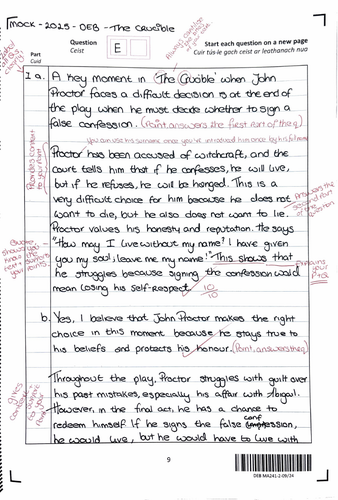 Mock - 2025 - DEB - The Crucible
Question
Ceist
E
Part
Cuid
Start each question on a new page
Cuir tús le gach ceist ar leathanach nua
1 a. A key moment in 'The Crucible' when John
Proctor faces a difficult decision is at the end of
the play when he must decide whether to sign a
false confession. (Point, answers the first part of the q)
You can use his surname once you've introduced him once by his full name
Proctor has been accused of witchcraft, and the
court tells him that if he confesses, he will live,
but if he refuses, he will be hanged. This is a
very difficult choice for him because he does not
want to die, but he also does not want to lie.
Proctor values his honesty and reputation. He says
"How may I live without my name? I have given
you my soul; leave me my name!" This shows that
he struggles because signing the confession would
mean losing his self-respect.
10/10
Provides context to your point
Answers the second part of the question
Explains your point
b. Yes, I believe that John Proctor makes the right
choice in this moment because he stays true to
his beliefs and protects his honour. (Point, answers the q)
Throughout the play, Proctor struggles with guilt over
his past mistakes, especially his affair with Abigail.
However, in the final act, he has a chance to
redeem himself. If he signs the false conf
ession,
he would live, but he would have to live with
gives context
9
DEB-MA241-2-09/24